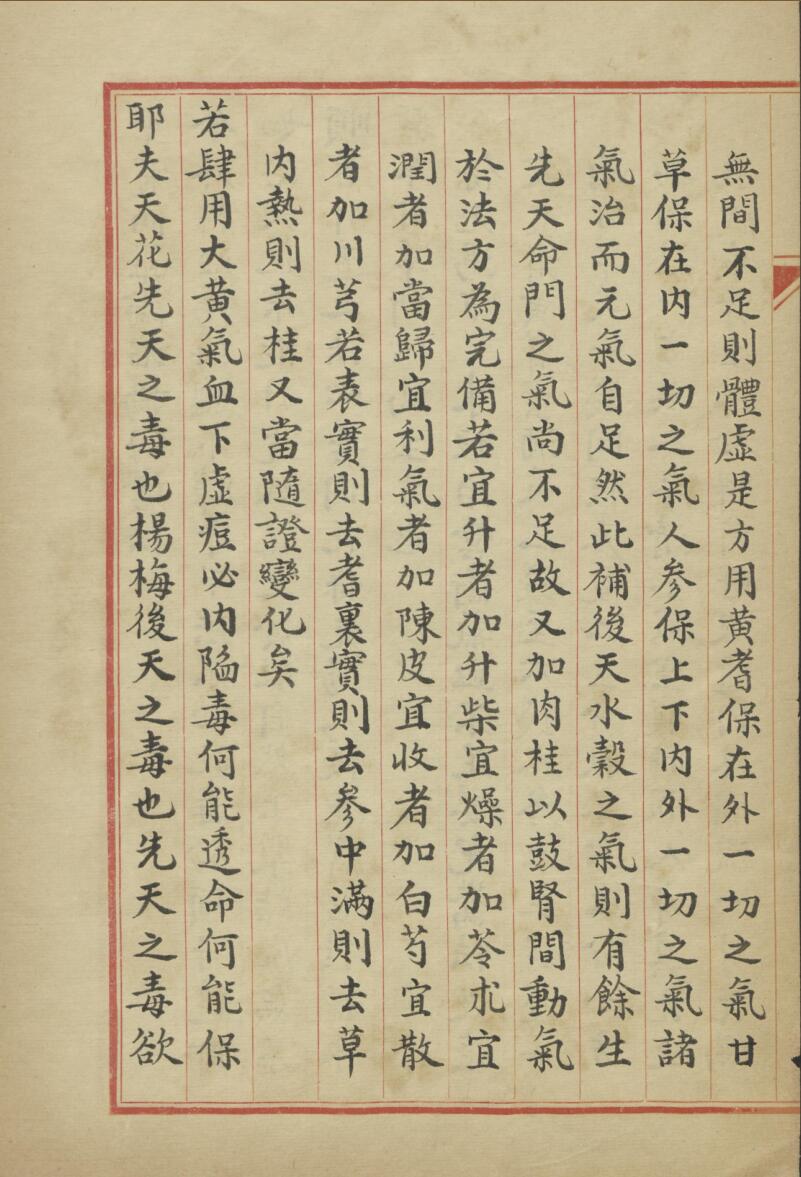 無間不足則體虛是方用黄耆保在外一切之氣甘
草保在内一切之氣人参保上下内外一切之氣諸
氣治而元氣自足然此補後天水穀之氣則有餘生
先天命門之氣尚不足故又加肉桂以鼓腎間動氣
於法方為完備若宜升者加升柴宜燥者加苓朮宜
潤者加當歸宜利氣者加陳皮宜收者加白芍宜散
者加川芎若表實則去耆裏實則去參中滿則去草
内熱則去桂又當隨證變化矣
若肆用大黄氣血下虛痘必内陷毒何能透命何能保
耶夫天花先天之毒也楊梅後天之毒也先天之毒欲